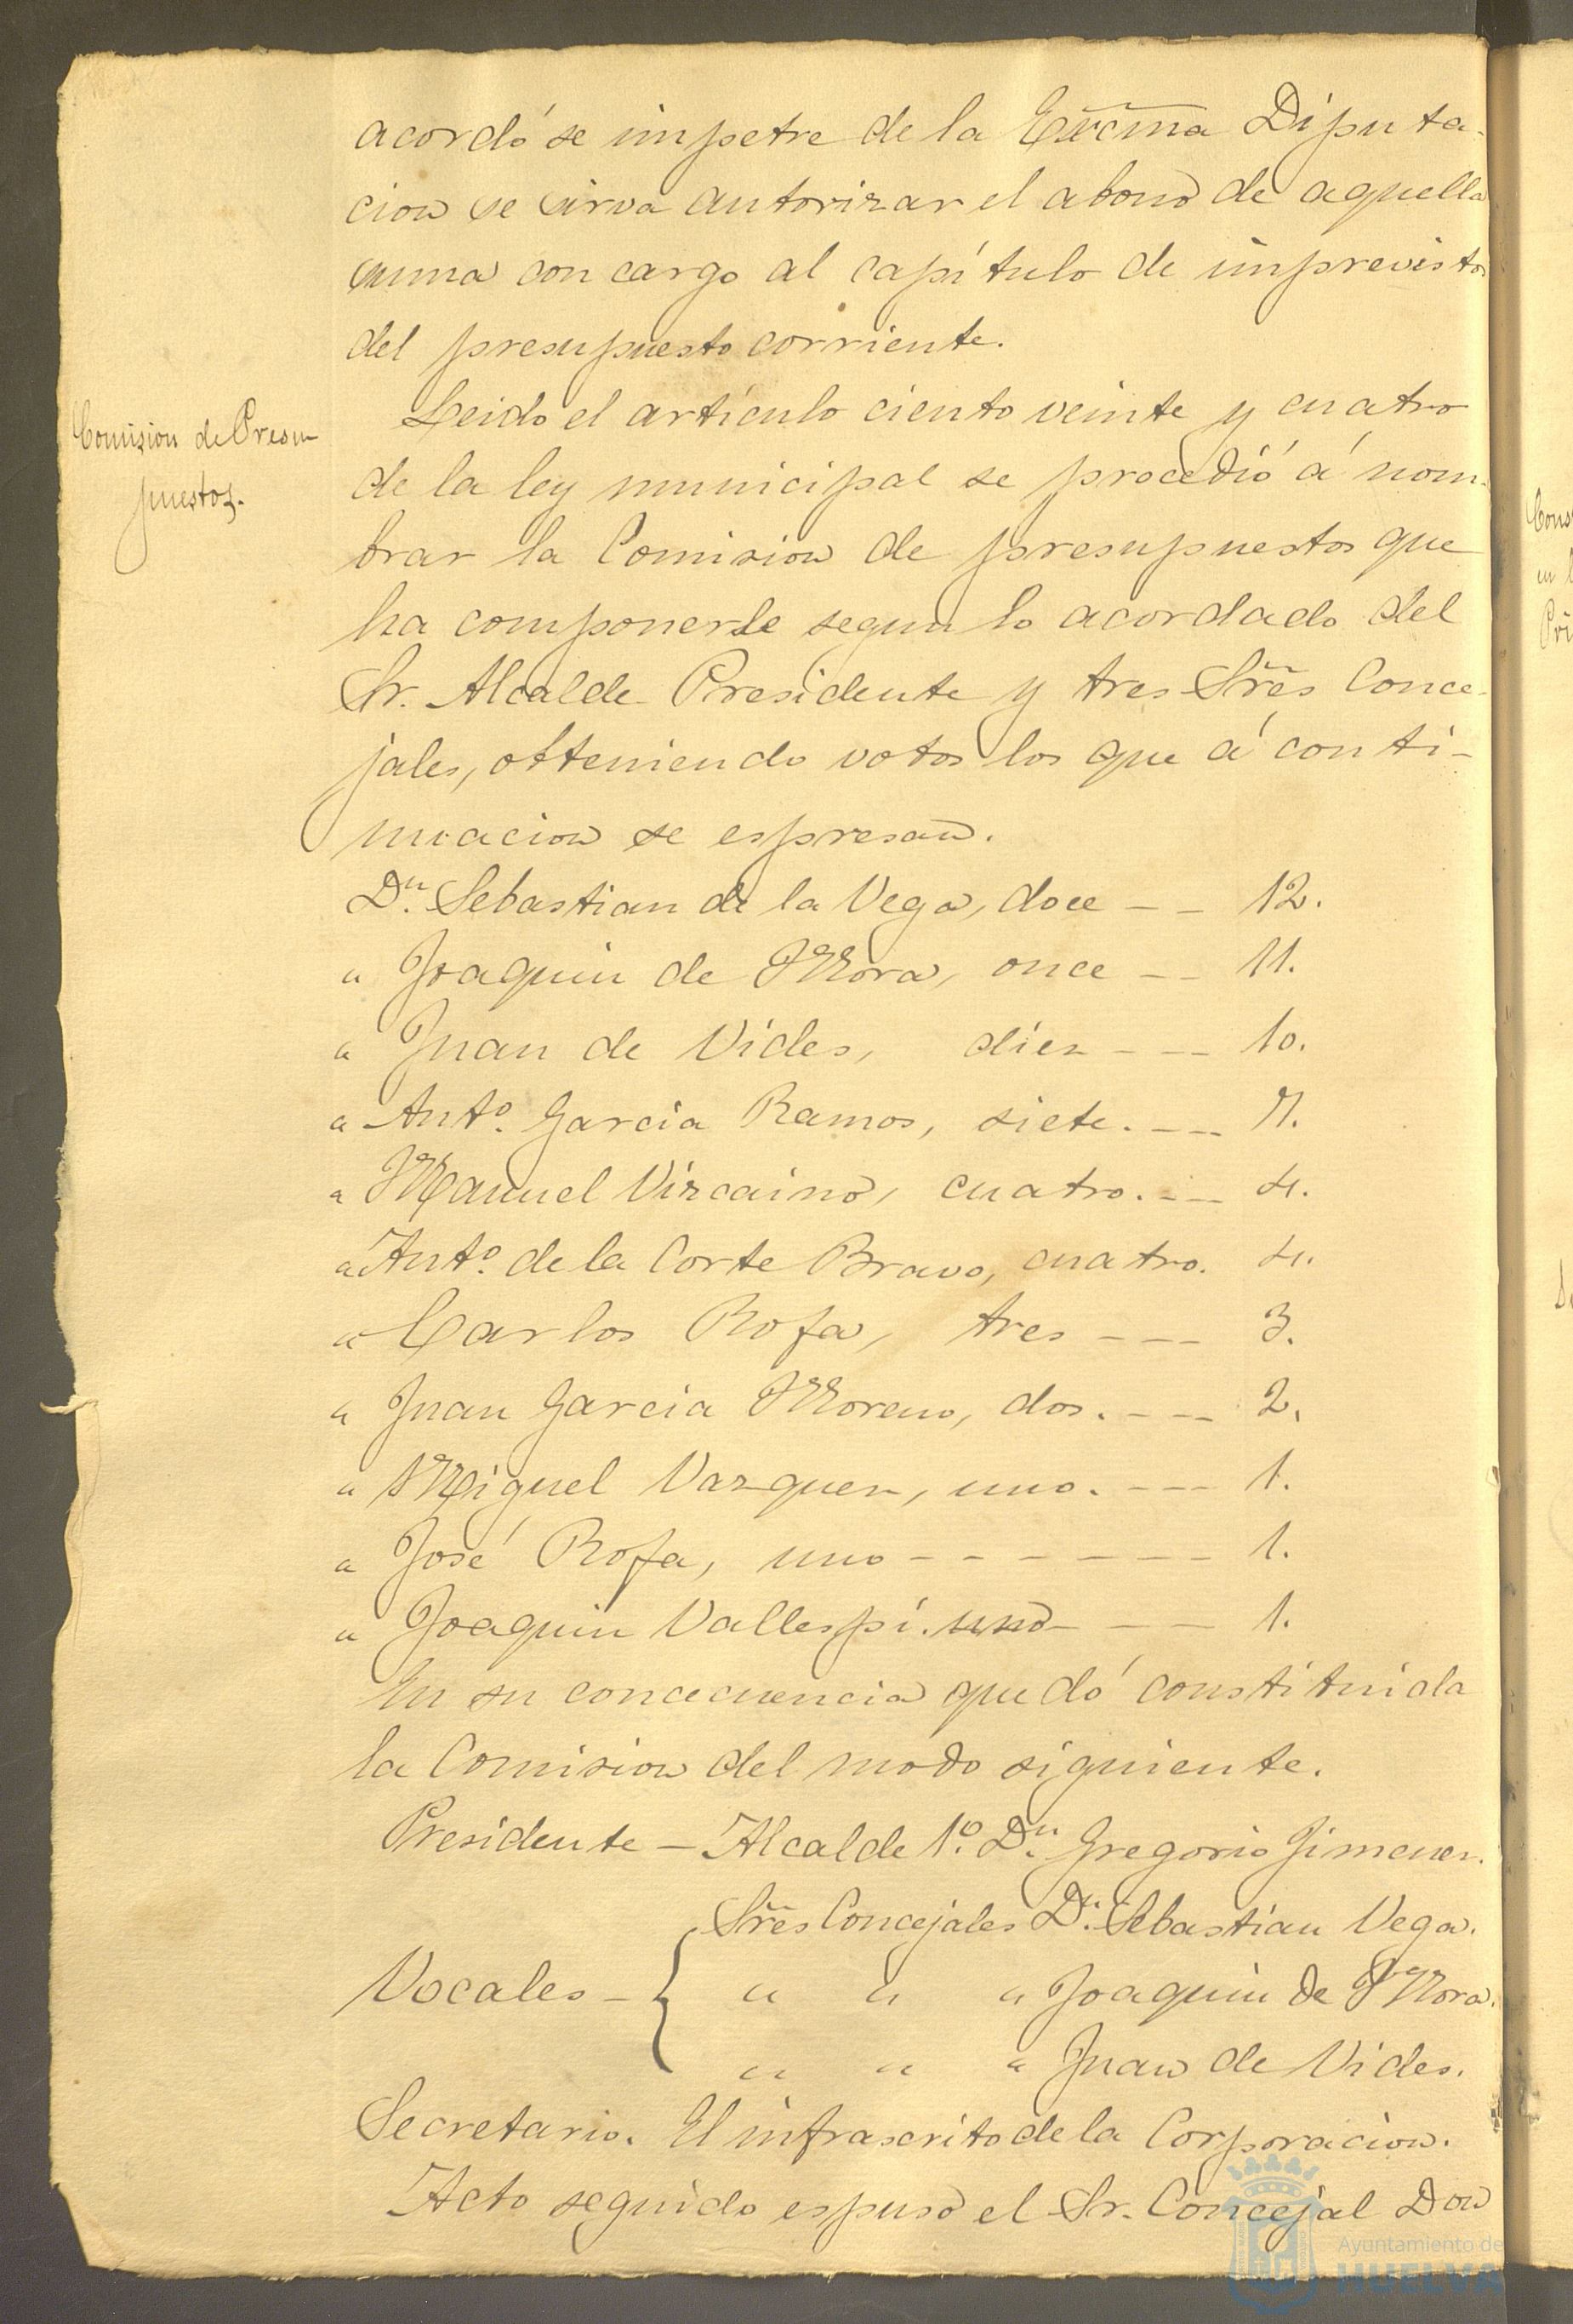 acordó se impetre de la Excma Diputa-
cion se sirva autorizar el abono de aquella
suma con cargo al capítulo de imprevistos
del presupuesto corriente.
Comision de Presu
puestos.
Leido el artículo ciento veinte y cuatro
de la ley municipal se procedió á nom-
brar la Comision de presupuestos que
ha componerse segun lo acordado del
Sr. Alcalde Presidente y tres Sres Conce-
jales, obteniendo votos los que á conti-
nuacion se espresan.
Dn. Sebastian de la Vega, doce — — 12.
" Joaquin de Mora, once — — 11.
" Juan de Vides, diez — — — 10.
" Anto. Garcia Ramos, siete. — — 7.
" Manuel Vizcaino, cuatro. — — 4.
" Anto. de la Corte Bravo, cuatro. 4.
" Carlos Rofa, tres — — — 3.
" Juan Garcia Moreno, dos. — — — 2.
" Miguel Vazquez, uno. — — — 1.
" José Rofa, uno — — — — — — 1.
" Joaquin Vallespí. uno — — — 1.
En su concecuencia quedó constituida
la Comision del modo siguiente.
Presidente — Alcalde 1º. Dn. Gregorio Jimenez.
Sres Concejales Dn. Sebastian Vega.
Vocales — { " " " Joaquin de Mora.
" " " Juan de Vides.
Secretario. El infrascrito de la Corporacion.
Acto seguido espuso el Sr. Concejal Don
Ayuntamiento de
HUELVA